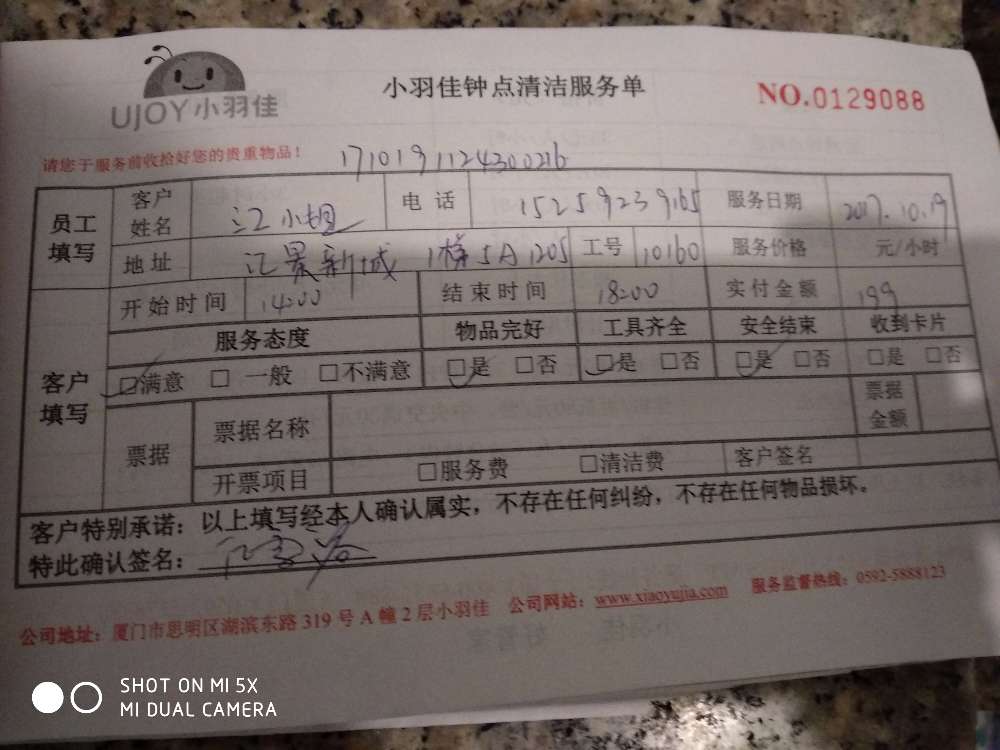 UJOY小羽佳
小羽佳钟点清洁服务单
NO.0129088
请您于服务前收拾好您的贵重物品!
1710191124300216
员工填写 客户姓名 江小姐 电话 15259239165 服务日期 2017.10.19
地址 汇景新城 1梯5A1205 工号 10160 服务价格 元/小时
客户填写 开始时间 14:00 结束时间 18:00 实付金额 199
服务态度 物品完好 工具齐全 安全结束 收到卡片
□满意 □一般 □不满意 □是 □否 □是 □否 □是 □否 □是 □否
票据 票据名称 票据金额
开票项目 □服务费 □清洁费 客户签名
客户特别承诺：以上填写经本人确认属实，不存在任何纠纷，不存在任何物品损坏。
特此确认签名：
公司地址：厦门市思明区湖滨东路 319 号 A 幢 2 层小羽佳 公司网站：www.xiaoyujia.com 服务监督热线：0592-5888123
SHOT ON MI 5X
MI DUAL CAMERA